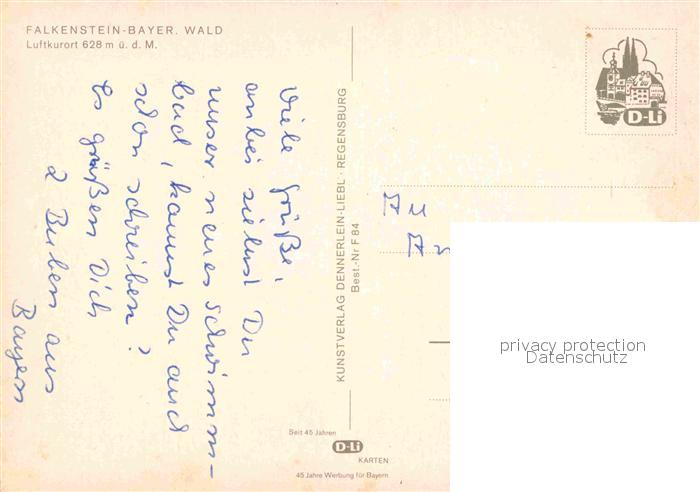 FALKENSTEIN-BAYER. WALD
Luftkurort 628 m ü. d. M.
Viele Grüße,
anbei siehst Du
unser neues Schwimm-
bad, kannst Du auch
schon schreiben?
Es grüßen Dich
2 Buben aus
Bayern
KUNSTVERLAG DENNERLEIN-LIEBL · REGENSBURG
Best.-Nr F 84
Seit 45 Jahren
D-Li
KARTEN
45 Jahre Werbung für Bayern
D-Li
privacy protection
Datenschutz